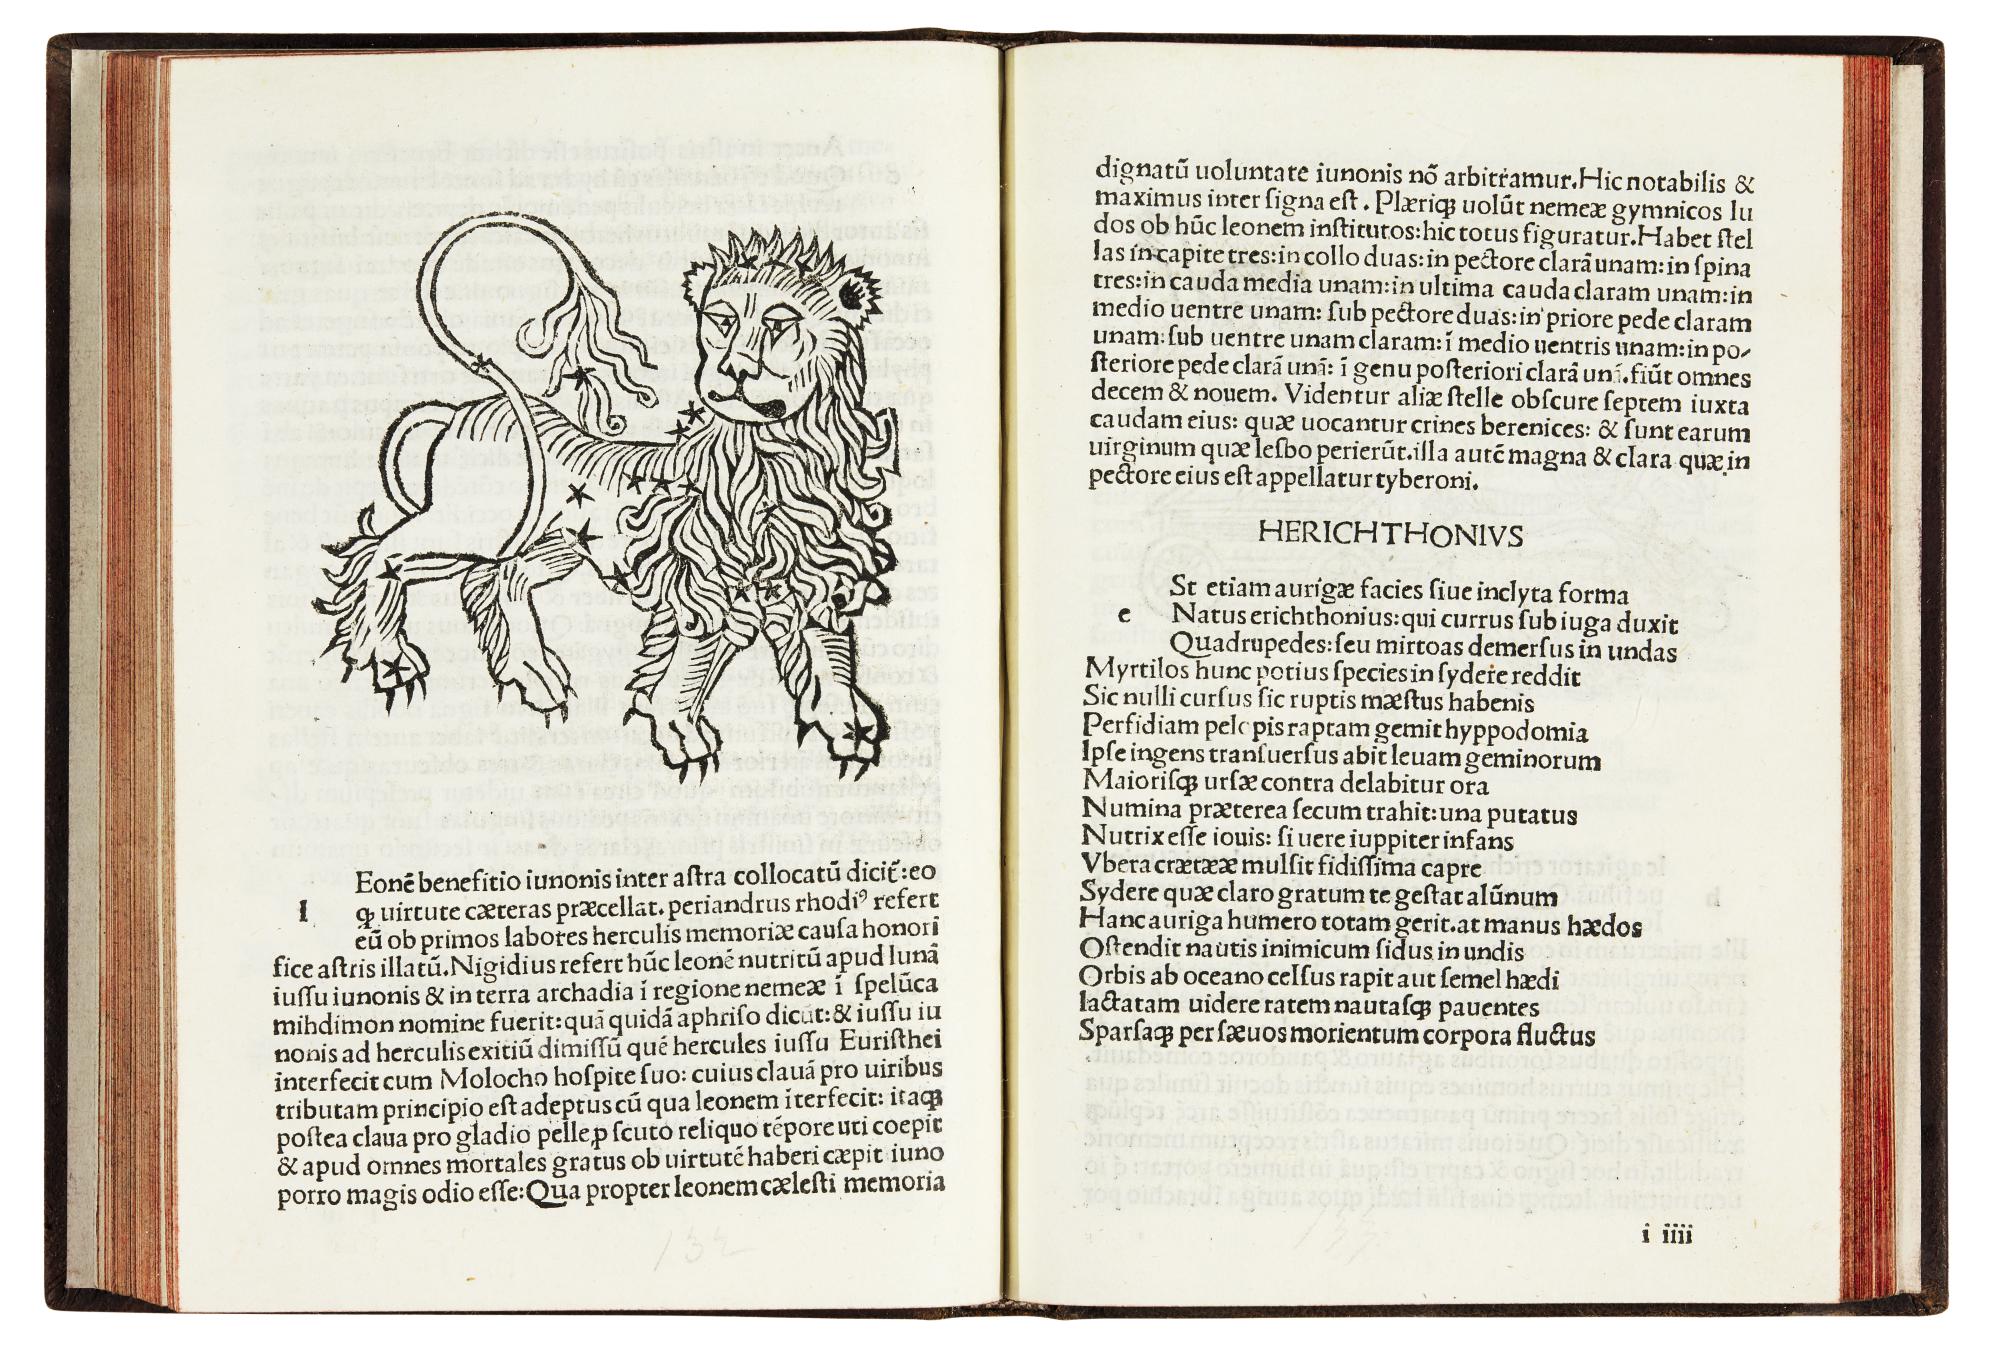 Eonē benefitio iunonis inter aſtra collocatū dicit̄:eo
l
ꝙ uirtute cæteras præcellat. periandrus rhodiꝰ refert
eū ob primos labores herculis memoriæ cauſa honori
fice aſtris illatū.Nigidius refert hūc leonē nutritū apud lunā
iuſſu iunonis & in terra archadia ī regione nemeæ ī ſpelūca
mihdimon nomine fuerit:quā quidā aphriſo dicūt:& iuſſu iu
nonis ad herculis exitiū dimiſſū quē hercules iuſſu Euriſthei
interfecit cum Molocho hoſpite ſuo: cuius clauā pro uiribus
tributam principio eſt adeptus cū qua leonem īterfecit: itaqꝫ
poſtea claua pro gladio pelle ꝓ ſcuto reliquo tēpore uti coepit
& apud omnes mortales gratus ob uirtutē haberi cæpit iuno
porro magis odio eſſe:Qua propter leonem cæleſti memoria
132
dignatū uoluntate iunonis nō arbitramur.Hic notabilis &
maximus inter ſigna eſt . Plæriqꝫ uolūt nemeæ gymnicos lu
dos ob hūc leonem inſtitutos:hic totus figuratur.Habet ſtel
las in capite tres:in collo duas:in pectore clarā unam:in ſpina
tres:in cauda media unam:in ultima cauda claram unam:in
medio uentre unam: ſub pectore duas:in priore pede claram
unam:ſub uentre unam claram:ī medio uentris unam:in po-
ſteriore pede clarā unā: ī genu poſteriori clarā unā.fiūt omnes
decem & nouem. Videntur aliæ ſtelle obſcure ſeptem iuxta
caudam eius: quæ uocantur crines berenices: & ſunt earum
uirginum quæ leſbo perierūt.illa autē magna & clara quæ in
pectore eius eſt appellatur tyberoni.
HERICHTHONIVS
St etiam aurigæ facies ſiue inclyta forma
e
Natus erichthonius:qui currus ſub iuga duxit
Quadrupedes:ſeu mirtoas demerſus in undas
Myrtilos hunc potius ſpecies in ſydere reddit
Sic nulli curſus ſic ruptis mæſtus habenis
Perfidiam pelopis raptam gemit hyppodomia
Ipſe ingens tranſuerſus abit leuam geminorum
Maioriſqꝫ urſæ contra delabitur ora
Numina præterea ſecum trahit: una putatus
Nutrix eſſe iouis: ſi uere iuppiter infans
Vbera crætææ mulſit fidiſſima capre
Sydere quæ claro gratum te geſtat alūnum
Hanc auriga humero totam gerit.at manus hædos
Oſtendit nautis inimicum ſidus in undis
Orbis ab oceano celſus rapit aut ſemel hædi
Iactatam uidere ratem nautaſqꝫ pauentes
Sparſaqꝫ per ſæuos morientum corpora fluctus
i iiii
133